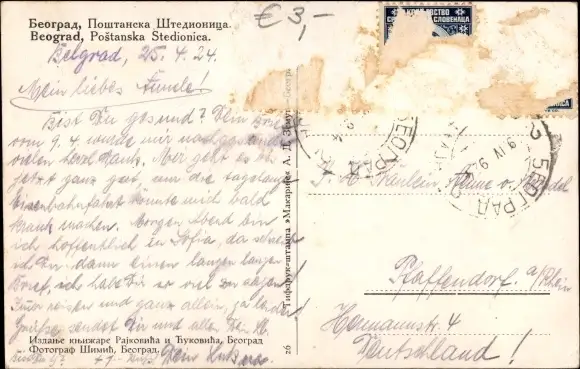 Београд, Поштанска Штедионица.
Beograd, Poštanska Štedionica.
€ 3,-
Belgrad, 25. 4. 24.
Mein liebes
Bist Du gesund? Dein Brief
vom 9.4. wurde mir
vielen herzl. Dank. Mir geht es bis
jetzt ganz gut, nur die tagelange
Eisenbahnfahrt könnte mich bald
krank machen. Morgen Abend bin
ich hoffentlich in Sofia, da schreibe
ich Dir dann einen langen langen
Brief, ich habe Dir so viel zu sagen.
reisen und ganz allein,
Grüße sendet Dir und allen
Dein
Издање књижаре Рајковића и Ћуковића, Београд
Фотограф Шимић, Београд.
26
Типграф.-штампа »Макарије« А. Д. Земун-Београд
КРАЉЕВСТВО
СЛОВЕНАЦА
БЕОГРАД
БЕОГРАД 2
9 IV
Fräulein
Pfaffendorf a/Rhein
Hermannstr. 4
Deutschland!